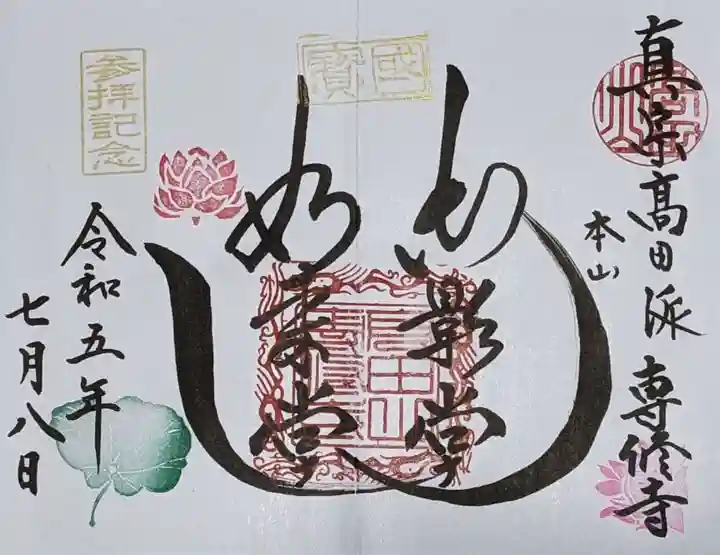 真宗高田派
本山
専修寺
國寶
御影堂
如来堂
参拝記念
令和五年
七月八日